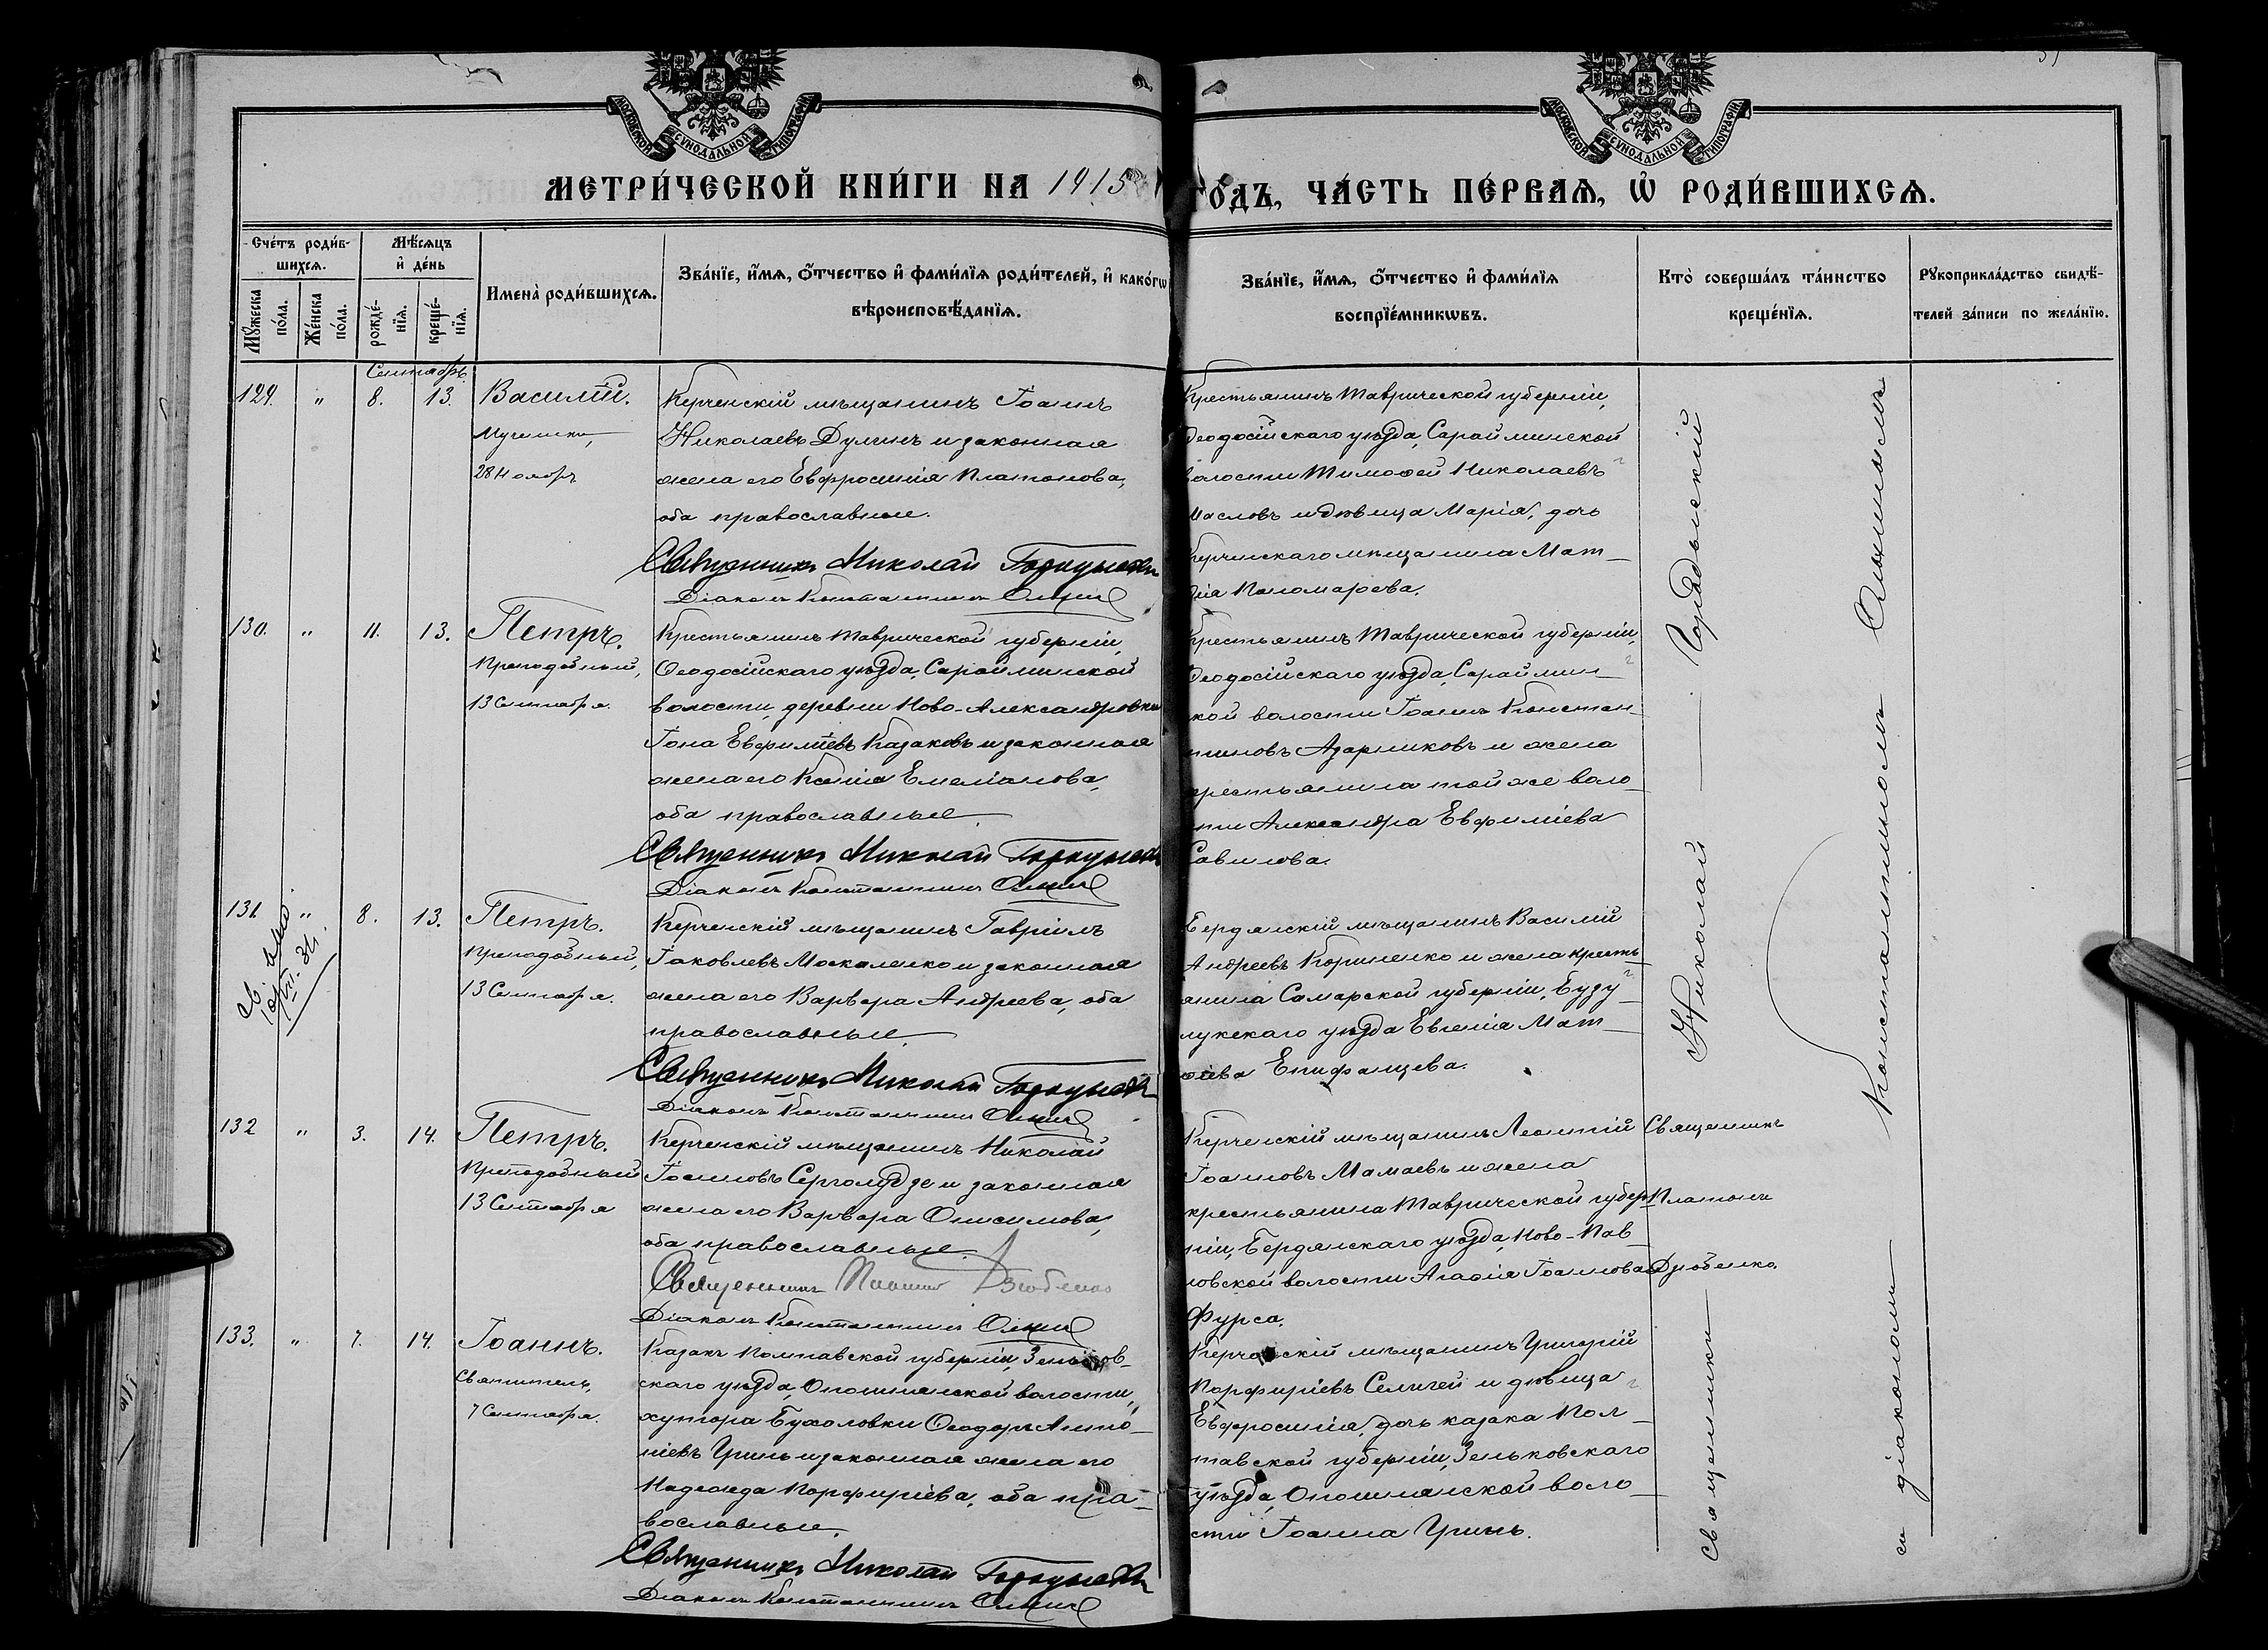 МОСКОВСКОЙ СУНОДАЛЬНОЙ ТИПОГРАФІИ
МОСКОВСКОЙ СУНОДАЛЬНОЙ ТИПОГРАФІИ
МЕТРИ́ЧЕСКОЙ КНИ́ГИ НА 1915
ГО́ДЪ, ЧА́СТЬ ПЕ́РВАѦ, Ѡ҆ РОДИ́ВШИХСѦ.
Сче́тъ роди́в-
шихсѧ.
Мꙋ́жеска по́ла.
Же́нска по́ла.
Мѣ́сѧцъ
и҆ де́нь
рожде́-
нїѧ.
креще́-
нїѧ.
Имена̀ роди́вшихсѧ.
Зва́нїе, и҆́мѧ, ѻ҆́тчество и҆ фами́лїѧ роди́телей, и҆ како́гѡ
вѣроисповѣ́данїѧ.
Зва́нїе, и҆́мѧ, ѻ҆́тчество и҆ фами́лїѧ
воспрїе́мникѡвъ.
Кто̀ соверша́лъ та́инство
креще́нїѧ.
Рꙋкоприкла́дство свидѣ́-
телей за́писи по жела́нїю.
Сентябрь
129. " 8. 13. Василій.
Мученикъ,
28 Ноября
Керченскій мѣщанинъ Іоаннъ
Николаевъ Дулинъ и законная
жена его Евфросинія Платонова,
оба православные.
Священникъ Николай Городынскій
Діаконъ Константинъ
Крестьянинъ Таврической губерніи,
Ѳеодосійскаго уѣзда, Сарайминской
волости Тимоѳей Николаевъ
Масловъ и дѣвица Марія, дочь
Керченскаго мѣщанина Мат-
ѳія Пономарева.
130. " 11. 13. Петръ.
Преподобный,
13 Сентября.
Крестьянинъ Таврической губерніи,
Ѳеодосійскаго уѣзда, Сарайминской
волости, деревни Ново-Александровки
Іона Евфиміевъ Казаковъ и законная
жена его Ксенія Емеліанова,
оба православные.
Священникъ Николай Городынскій
Діаконъ Константинъ
Крестьянинъ Таврической губерніи,
Ѳеодосійскаго уѣзда, Сараймин-
ской волости Іоаннъ Констан-
тиновъ Азарниковъ и жена
крестьянина той же воло-
сти Александра Евфиміева
Савилова.
131. " 8. 13. Петръ.
Преподобный,
13 Сентября.
Керченскій мѣщанинъ Гавріилъ
Іаковлевъ Москаленко и законная
жена его Варвара Андреева, оба
православные.
Священникъ Николай Городынскій
Діаконъ Константинъ
Бердянскій мѣщанинъ Василій
Андреевъ Корниенко и жена кресть-
янина Самарской губерніи, Бузу-
лукскаго уѣзда Евгенія Мат-
ѳіева Епифанцева.
132 " 3. 14. Петръ.
Преподобный
13 Сентября
Керченскій мѣщанинъ Николай
Іоанновъ и законная
жена его Варвара Онисимова,
оба православные.
Священникъ Платонъ
Діаконъ Константинъ
Керченскій мѣщанинъ Леонтій
Іоанновъ Мамаевъ и жена
крестьянина Таврической губер-
ніи, Бердянскаго уѣзда, Ново-Пав-
ловской волости Агаѳія Іоаннова
Фурса.
Священникъ
Платонъ
133. " 7. 14. Іоаннъ.
Святитель,
7 Сентября.
Казакъ Полтавской губерніи, Зеньков-
скаго уѣзда, Опошнянской волости,
хутора Бухаловки Ѳеодоръ Анто-
ніевъ Гринь и законная жена его
Надежда Порфиріева, оба пра-
вославные.
Священникъ Николай Городынскій
Діаконъ Константинъ
Керченскій мѣщанинъ Григорій
Порфиріевъ Селичей и дѣвица
Евфросинія, дочь казака Пол-
тавской губерніи, Зеньковскаго
уѣзда, Опошнянской воло-
сти Іоанна Гринь.
Священникъ Николай Городынскій
съ діакономъ Константиномъ